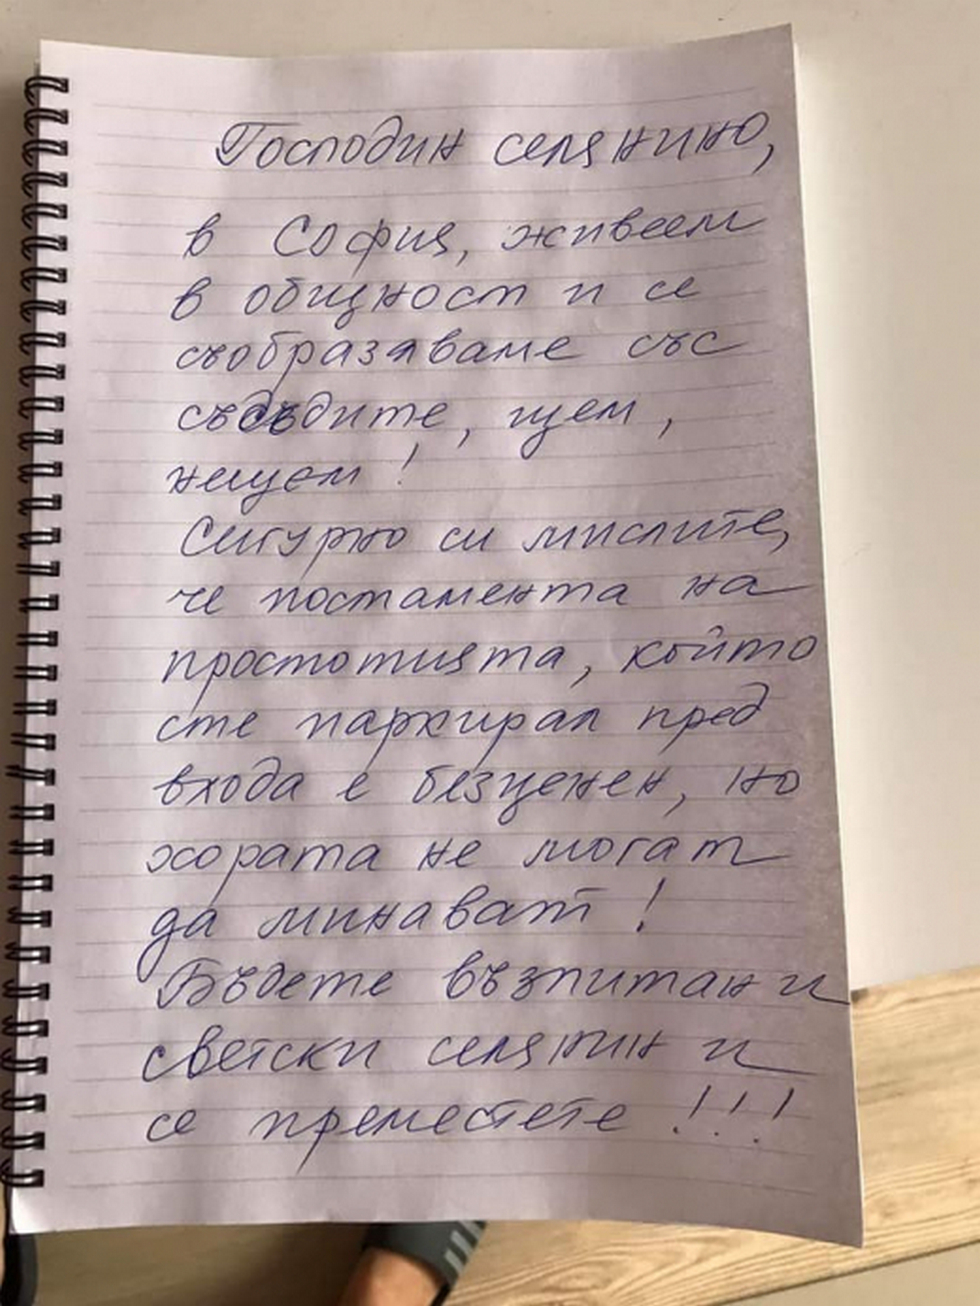 Господин селянино,
в София, живеем
в общност и се
съобразяваме със
съседите, щем,
нещем!
Сигурно си мислите,
че постамента на
простотията, който
сте паркирал пред
входа е безценен, но
хората не могат
да минават!
Бъдете възпитан и
светски селянин и
се преместете!!!